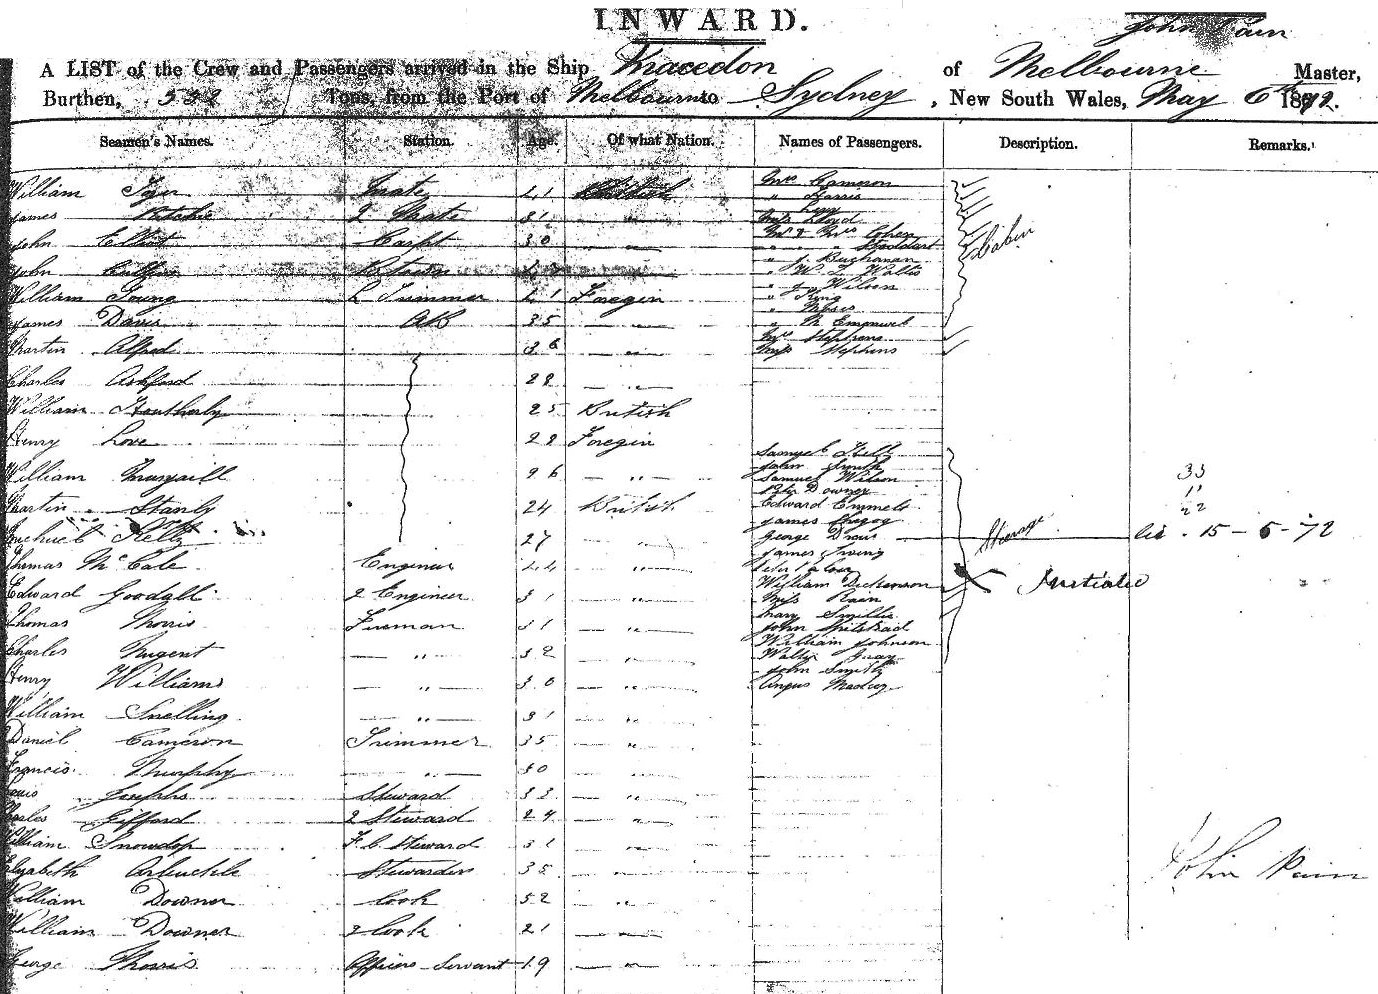 INWARD.
John Pain
A LIST of the Crew and Passengers arrived in the Ship Macedon of Melbourne Master,
Burthen, 532 Tons, from the Port of Melbourne to Sydney, New South Wales, May 6th 1872.
Seamen's Names. Station. Age. Of what Nation. Names of Passengers. Description. Remarks.
William Tyer Mate 41 British
James Ritchie 2 Mate 31 "
John Elliot Carpt 30 "
John
William Young L Trimmer 41 Foregin
James Davis AB 35 "
Martin Alfred 36 "
Charles Ashford 28 "
William Heatherly 25 British
Henry Love 28 Foregin
William 26 "
Martin Stanly 24 British
Michael Kelly 27 "
Thomas McCale Engineer 44 "
Edward Goodall 2 Engineer 31 "
Thomas Morris Fireman 31 "
Charles Nugent " 32 "
Henry Williams " 30 "
William Snelling " 31 "
Daniel Cameron Trimmer 35 "
Francis Murphy " 30 "
Louis Josephs Steward 33 "
Charles Gifford 2 Steward 24 "
William Snowdop F.C. Steward 31 "
Elizabeth Arbuckle Stewardess 35 "
William Downer Cook 52 "
William Downer 2 Cook 21 "
George Morris Officers Servant 19 "
Mrs Cameron
" Harris
" Lyny
Miss Lloyd
Mr & Mrs Cohen
" " " Stoddart
" J. Buchanan
" W. L. Watts
" J. Wilson
" King
" Moses
" M Emanuel
Mrs Stephens
Miss Stephens
Cabin
Samuel Kelly
John Smith
Samuel Wilson
Peter Downey
Edward Emmels
James
George Davis
James Irving
William Dickenson
Miss Pain
Mary Smillie
John
William Johnson
Walter Gray
John Smith
Angus
Steerage
33
11
22
15-5-72
Initialed
John Pain